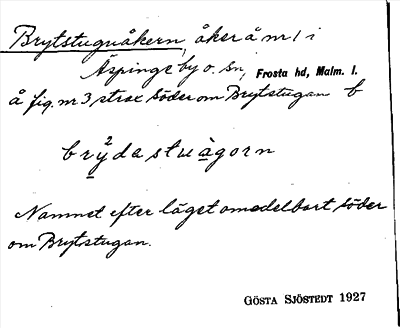 Brytstuguåkern, åker å nr 1 i
Äspinge by o. sn, Frosta hd, Malm. l.
å fig. nr 3 strax söder om Brytstugan b
brýdastuàgorn
Namnet efter läget omedelbart söder
om Brytstugan.
GÖSTA SJÖSTEDT 1927